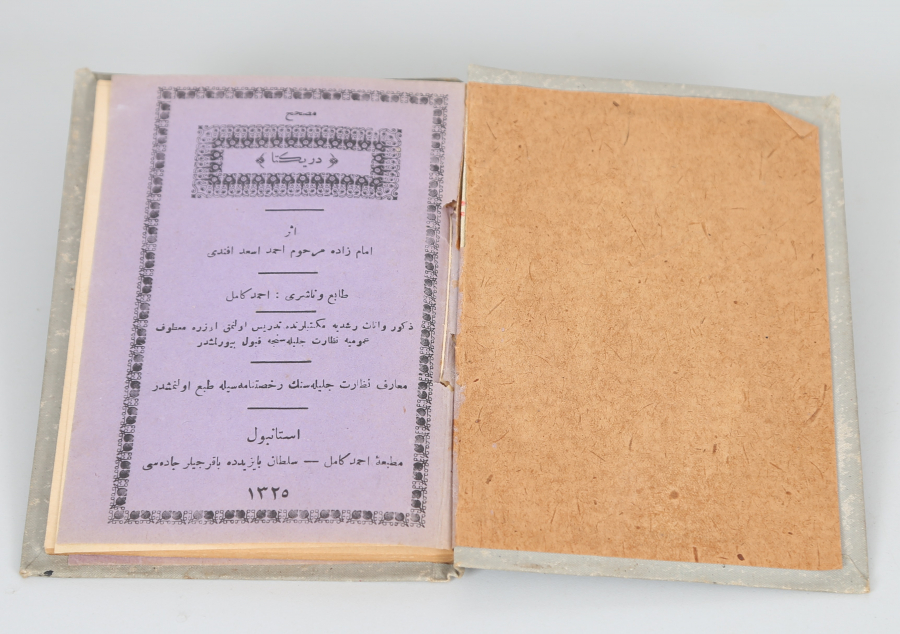 مصحح
﴿ دریكتا ﴾
اثر
امام زاده مرحوم احمد اسعد افندی
طابع و ناشری : احمد كامل
ذكور واناث رشدیه مكتبلرنده تدریس اولنمق اوزره معارف
عمومیه نظارت جلیله‌سنجه قبول بیورلمشدر
معارف نظارت جلیله‌سنك رخصتنامه‌سیله طبع اولنمشدر
استانبول
مطبعهٔ احمد كامل — سلطان بایزیدده باقرجیلر جاده‌سی
١٣٢٥